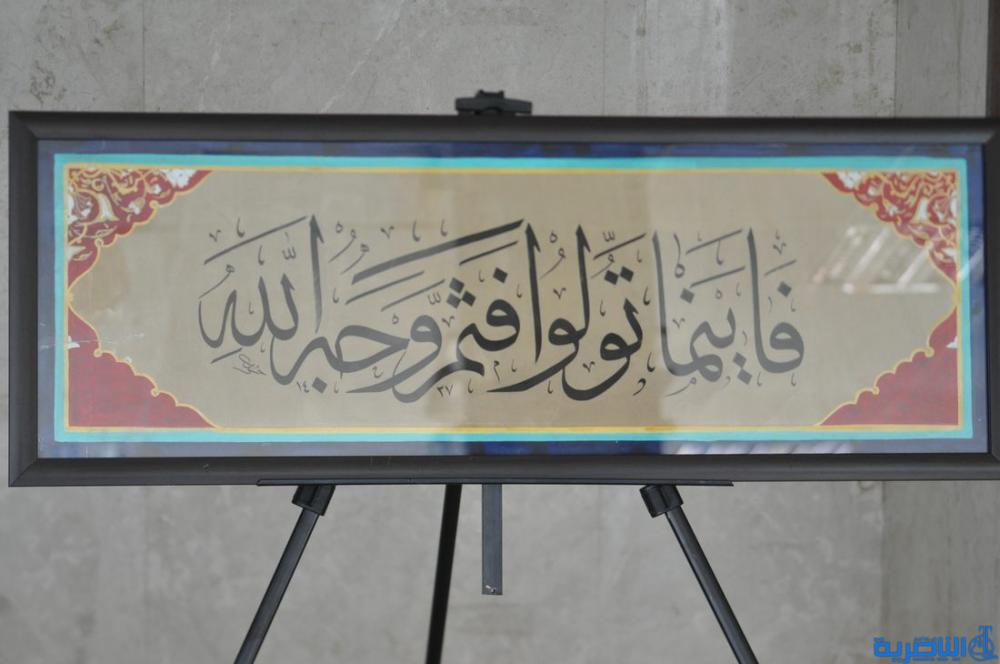 فَأَيْنَمَا تُوَلُّوا فَثَمَّ وَجْهُ اللَّهِ
١٤٣٧
الناصرية